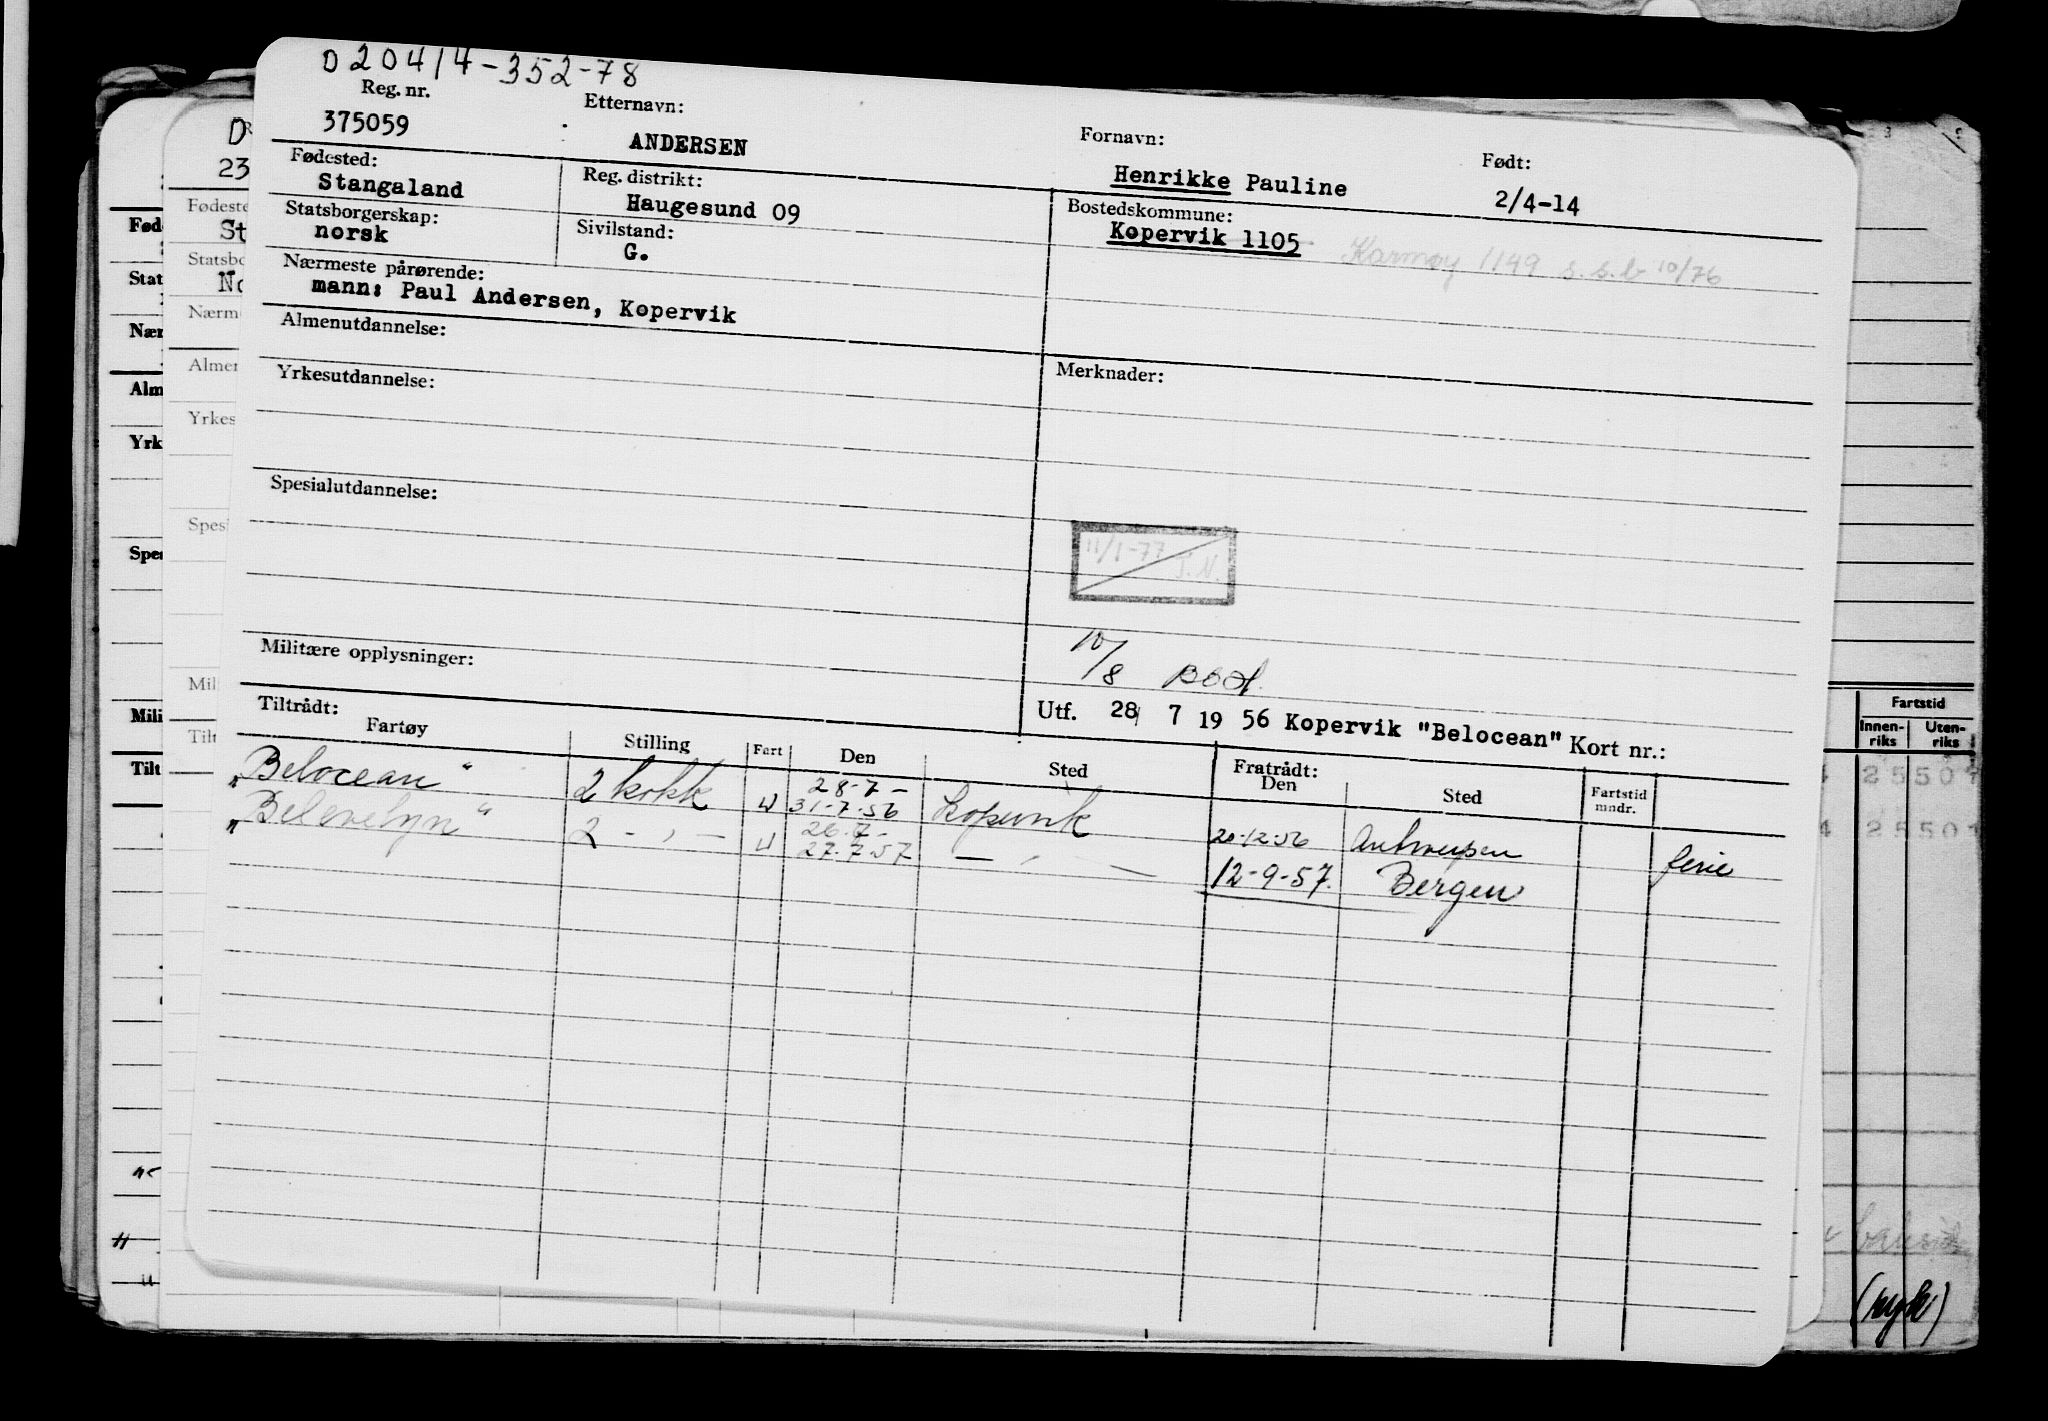 D 20414-352-78
Reg. nr. Etternavn: Fornavn: Født:
375059 ANDERSEN Henrikke Pauline 2/4-14
Fødested: Reg. distrikt: Bostedskommune:
Stangaland Haugesund 09 Kopervik 1105 Karmøy 1149 s.s.b 10/76
Statsborgerskap: Sivilstand:
norsk G.
Nærmeste pårørende:
mann: Paul Andersen, Kopervik
Almenutdannelse:
Yrkesutdannelse: Merknader:
Spesialutdannelse:
11/1-77
Militære opplysninger:
10/8
Utf. 28/ 7 19 56 Kopervik "Belocean" Kort nr.:
Tiltrådt: Fratrådt:
Fartøy Stilling Fart Den Sted Den Sted Fartstid mndr.
"Belocean" 2 kokk U 28-7- 31-7-56 Kopervik 20-12-56 Antwerpen ferie
"Belevelyn" 2 - " - U 26.7- 27.7-57 - " - 12-9-57. Bergen
D
23
Fødeste
St
Statsbo
No
Nærm
Almer
Yrkes
Spesi
Mil
Tilt
Fød
Stat
Nær
Alm
Yrk
Spe
Mili
Tilt
Fartstid
Innen-riks Uten-riks